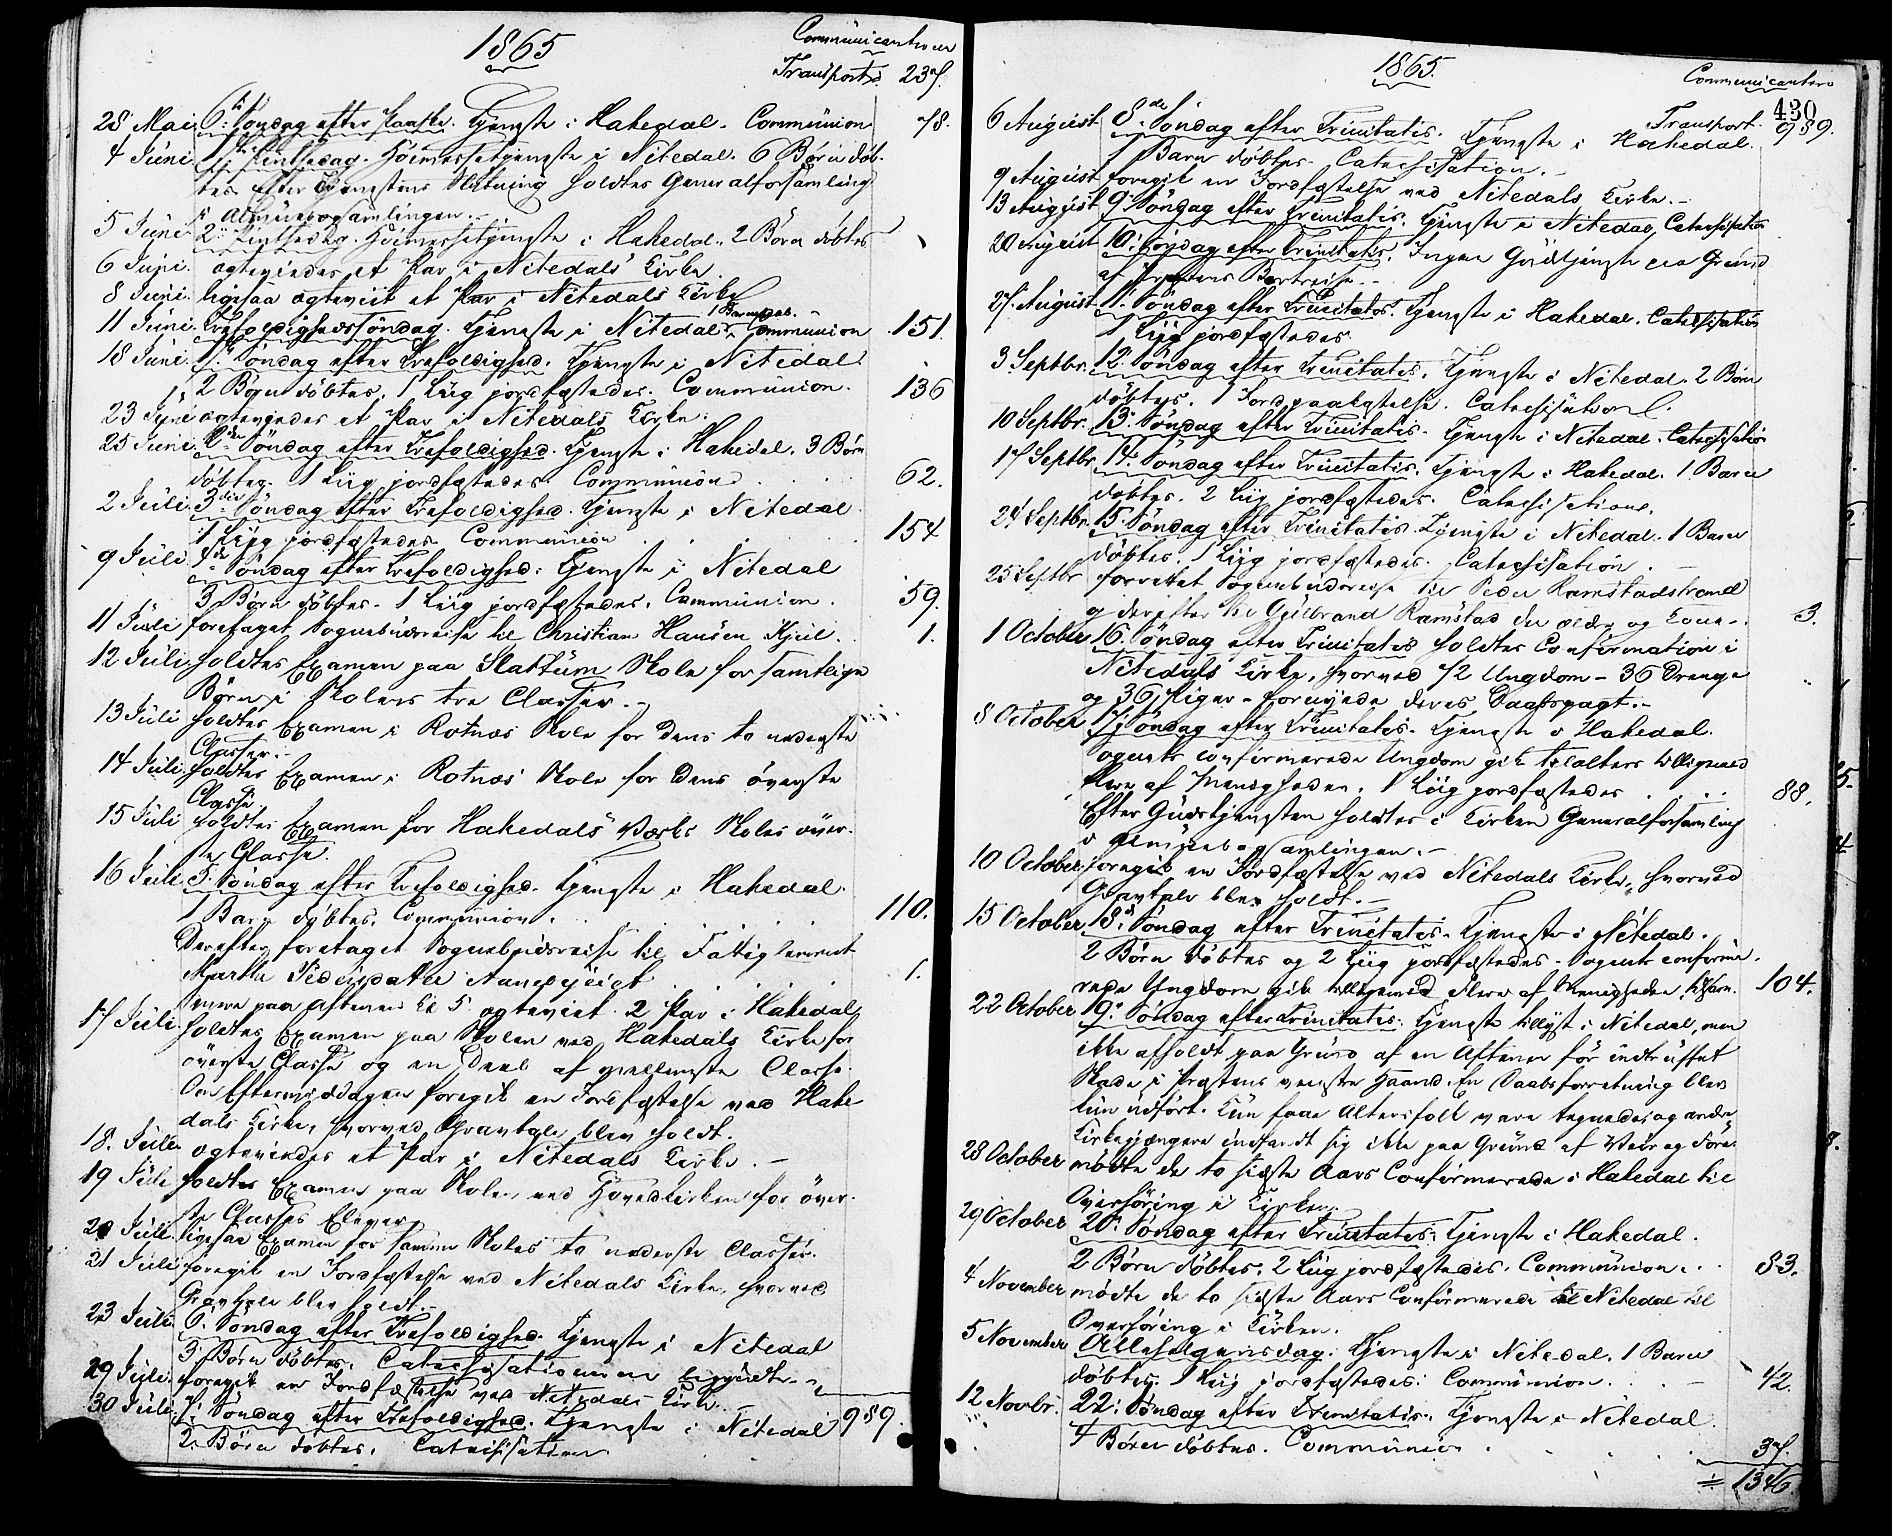 1865
Communicanterne
Transport 237.
28 Mai 6te Søndag efter Paaske. Tjeneste i Hakedal. Communion 78.
4 Juni 1ste Pintsedag. Høimessetjeneste i Nitedal. 6 Børn døb-
tes. Efter Tjenestens Slutning holdtes Generalforsamling
i Almuebogsamlingen.
5 Juni 2den Pintsedag. Høimessetjeneste i Hakedal. 2 Børn døbtes
6 Juni. ægteviedes et Par i Nitedals Kirke.
8 Juni. ligesaa ægteviet et Par i Nitedals Kirke
1 Barnedaab.
11 Juni. Trefoldighedssøndag. Tjeneste i Nitedal. Communion 151
18 Juni. 1ste Søndag efter Trefoldighed. Tjeneste i Nitedal
2 Børn døbtes. 1 Liig jordfæstedes. Communion. 136
23 Juni ægteviedes et Par i Nitedals Kirke.
25 Juni. 2den Søndag efter Trefoldighed. Tjeneste i Hakedal. 3 Børn
døbtes. 1 Liig jordfæstedes. Communion 62.
2 Juli. 3die Søndag efter Trefoldighed. Tjeneste i Nitedal.
1 Liig jordfæstedes. Communion 154
9 Juli 4de Søndag efter Trefoldighed. Tjeneste i Nitedal
3 Børn døbtes. 1 Liig jordfæstedes. Communion. 59.
11 Juli foretaget Sognebudsreise til Christian Hansen Kjul. 1.
12 Juli holdtes Examen paa Slattum Skole for samtlige
Børn i Skolens tre Classer.
13 Juli holdtes Examen i Rotnæs Skole for dens to nederste
Classer.
14 Juli holdtes Examen i Rotnæs Skole for dens øverste
Classe.
15 Juli holdtes Examen for Hakedals Værks Skoles øver-
ste Classe.
16 Juli 5. Søndag efter Trefoldighed. Tjeneste i Hakedal.
1 Barn døbtes. Communion. 110.
Derefter foretaget Sognebudsreise til Fattiglemmet
Marthe Pedersdatter 1.
samme paa Aftenen Kl 5 ægteviet 2 Par i Hakedal
17 Juli. holdtes Examen paa Skolen ved Hakedals Kirke for
øverste Classe og en Deel af mellemste Classe.
Om Eftermiddagen foregik en Jordfæstelse ved Hake-
dals Kirke, hvorved Gravtale blev holdt.
18. Juli ægteviedes et Par i Nitedals Kirke.
19 Juli holdtes Examen paa Skolen ved Hovedkirken for øver-
ste Classes Elever
20 Juli. ligesaa Examen for samme Skoles to nederste Classer.
21 Juli foregik en Jordfæstelse ved Nitedals Kirke, hvorved
Gravtale blev holdt.
23 Juli. 6. Søndag efter Trefoldighed. Tjeneste i Nitedal
3 Børn døbtes. Catechisationerne begyndte.
29 Juli. foregik en Jordfæstelse ved Nitedals Kirke.
30 Juli. 7. Søndag efter Trefoldighed. Tjeneste i Nitedal 989.
2 Børn døbtes. Catechisation
1865.
Communicanterne
430
Transport. 989.
6 August 8de Søndag efter Trinitatis. Tjeneste i Hakedal.
1 Barn døbtes. Catechisation.
9 August foregik en Jordfæstelse ved Nitedals Kirke.
13 August 9. Søndag efter Trinitatis. Tjeneste i Nitedal. Catechisation
20 August 10. Søndag efter Trinitatis. Ingen Gudstjeneste paa Grund
af Præstens Bortreise.
27. August 11. Søndag efter Trinitatis. Tjeneste i Hakedal. Catechisation
1 Liig jordfæstedes.
3. Septbr. 12. Søndag efter Trinitatis. Tjeneste i Nitedal. 2 Børn
døbtes. 1 Jordpaakastelse. Catechisation.
10 Septbr. 13. Søndag efter Trinitatis. Tjeneste i Nitedal. Catechisation
17 Septbr. 14. Søndag efter Trinitatis. Tjeneste i Hakedal. 1 Barn
døbtes. 2 Liig jordfæstedes. Catechisation.
24 Septbr. 15. Søndag efter Trinitatis. Tjeneste i Nitedal. 1 Barn
døbtes. 1 Liig jordfæstedes. Catechisation.
25 Septbr forrettet Sognebudsreise til Peder Ramstadstrand
og derefter til Gulbrand Ramstad den ældre og Kone. 3.
1 October 16. Søndag efter Trinitatis holdtes Confirmation i
Nitedals Kirke, hvorved 72 Ungdom – 36 Drenge
og 36 Piger – fornyede deres Daabspagt.
8 October 17. Søndag efter Trinitatis. Tjeneste i Hakedal.
Sognets confirmerede Ungdom gik til alters tilligemed
flere af Menigheden. 1 Liig jordfæstedes 88.
Efter Gudstjenesten holdtes i Kirken Generalforsamling
i Almuebogsamlingen.
10 October. foregik en Jordfæstelse ved Nitedals Kirke, hvorved
Gravtale blev holdt.
15 October 18. Søndag efter Trinitatis. Tjeneste i Nitedal.
2 Børn døbtes og 2 Liig jordfæstedes. Sognets confirme-
rede Ungdom gik tilligemed flere af Menigheden til 104.
22 October 19. Søndag efter Trinitatis. Tjeneste tillyst i Nitedal, men
ikke afholdt paa Grund af en Aftenen før indtruffet
Skade i Præstens venstre Haand. En Daabsforretning blev
kun udført. Kun faae Altersfolk vare tegnede og andre
Kirkegjængere indfandt sig ikke paa Grund af Veir og Føre.
28 October mødte de to sidste Aars Confirmerede i Hakedal til
Overhøring i Kirken.
29 October 20. Søndag efter Trinitatis. Tjeneste i Hakedal.
2 Børn døbtes. 2 Liig jordfæstedes. Communion. 83.
4 November mødte de to sidste Aars Confirmerede til Nitedal til
Overhøring i Kirken.
5 November Allehelgensdag. Tjeneste i Nitedal. 1 Barn
døbtes. 1 Liig jordfæstedes. Communion. 42.
12 Novbr. 22. Søndag efter Trinitatis. Tjeneste i Nitedal
4 Børn døbtes. Communion. 37.
1346.